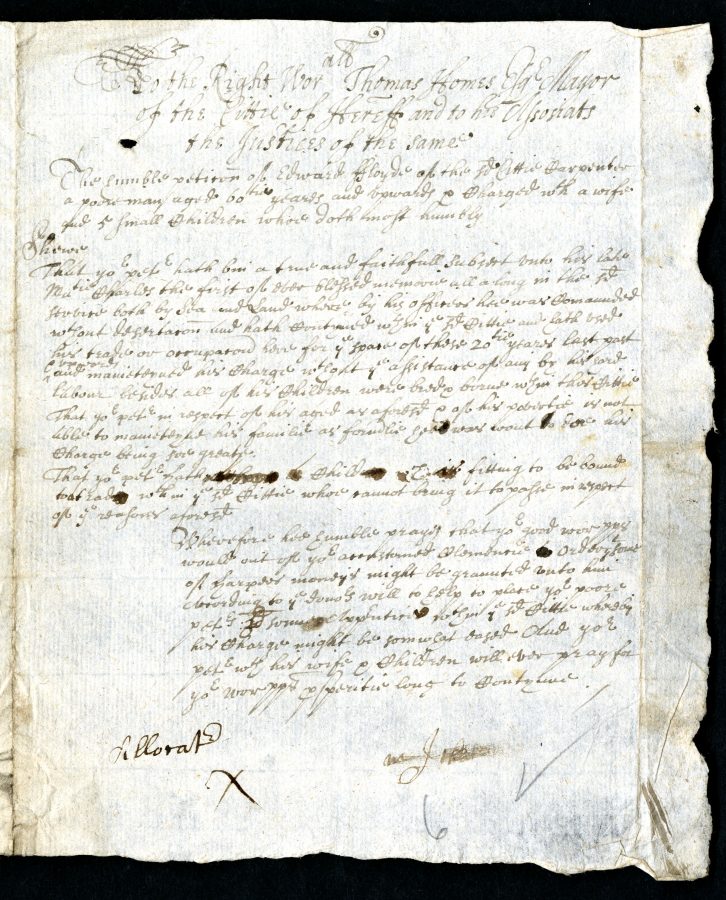 To the Right Wor^all Thomas Homes Esq^r Mayor
of the Cittie of Hereff and to his Assosiats
the Justices of the same
The humble peticon of Edward Floyde of the sd Cittie Carpenter
a poore man aged 60^tie yeares and upwards & Charged wth a wife
and 5 small Children whoe doth most humely
Shewe
That yo^r pet^r hath bin a true and faithfull Subiect unto his late
Ma^tie Charles the first of ever blessed memorie all along in the sd
service both by Sea and Land where by his officers hee was Comaunded
wthout desertacon and hath Contynued wthin y^e sd Cittie and hath used
his trade or occupacon here for y^e space of these 20^tie yeares last past
and mainteined his Charge wthout y^e asistance of any by his hard
labour besides all of his Children were bred & borne wthin this Cittie
That yo^r pet^r in respect of his aged as aforesd & of his povertie is not
able to mainteine his familie as formlie hee was wont to doe his
Charge being soe greate
That yo^r pet^r hath Children fitting to be bound
to trades wthin y^e sd Cittie whoe cannot bring it to passe in respect
of y^e reasons aforesd
Wherefore hee humble prayes that yo^r good wor^pps
would out of yo^r accustomed Clemencie Order some
of Harpers moneys might be graunted unto him
according to y^e donors will to help to place yo^r poore
pet^r Apprentice wthin y^e sd Cittie whereby
his Charge might be somwhat eased And yo^r
pet^r wth his wife & Children will ever pray for
yo^r wor^pps psperitie long to Contynue
Allocat^r
X
6